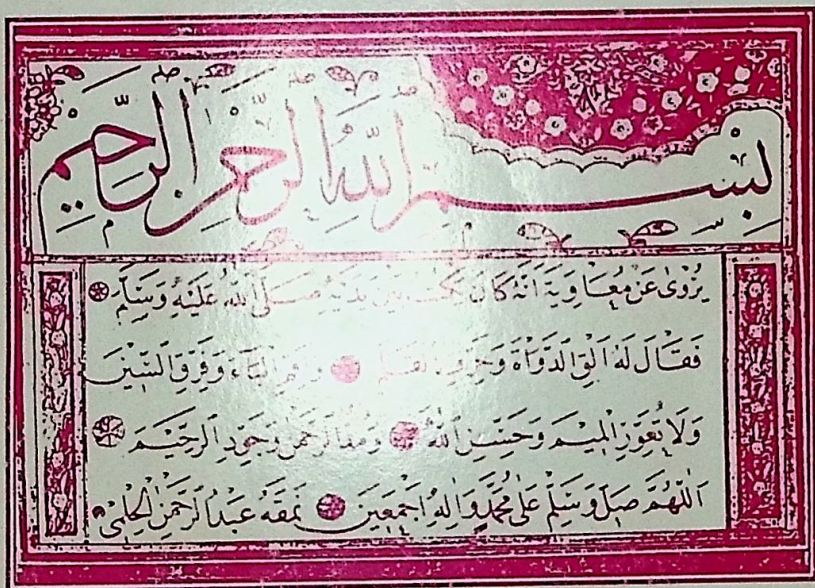 بِسْمِ اللهِ الرَّحْمٰنِ الرَّحِيْمِ
يُرْوٰى عَنْ مُعَاوِيَةَ اَنَّهُ كَانَ يَكْتُبُ بَيْنَ يَدَيْهِ صَلَّى اللهُ عَلَيْهِ وَسَلَّمَ
فَقَالَ لَهُ اَلِقِ الدَّوَاةَ وَحَرِّفِ الْقَلَمَ وَاَقِمِ الْبَاءَ وَفَرِّقِ السِّيْنَ
وَلَا تُعَوِّرِ الْمِيْمَ وَحَسِّنِ اللهَ وَمُدَّ الرَّحْمٰنَ وَجَوِّدِ الرَّحِيْمَ
اَللّٰهُمَّ صَلِّ وَسَلِّمْ عَلٰى مُحَمَّدٍ وَاٰلِهِ اَجْمَعِيْنَ نَمَقَهُ عَبْدُ الرَّحْمٰنِ